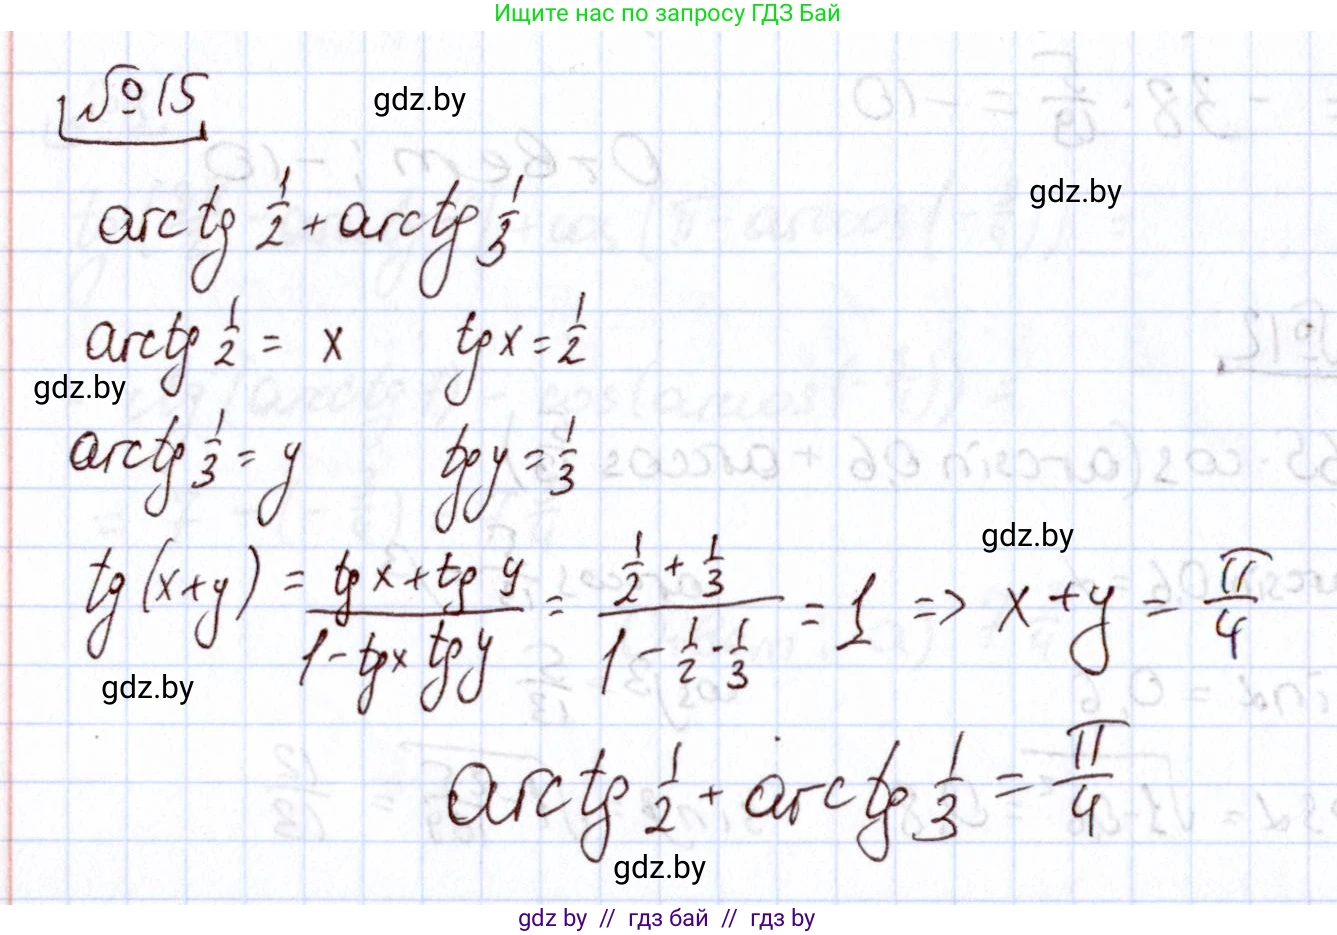 Ищите нас по запросу ГДЗ Бай
№15
gdz.by
gdz.by
arctg 1/2 + arctg 1/3
arctg 1/2 = x   tg x = 1/2
gdz.by
arctg 1/3 = y   tg y = 1/3
gdz.by
tg (x+y) = (tg x + tg y)/(1 - tg x tg y) = (1/2 + 1/3)/(1 - 1/2 · 1/3) = 1 => x + y = π/4
gdz.by
arctg 1/2 + arctg 1/3 = π/4
gdz.by
gdz by // гдз бай // гдз by